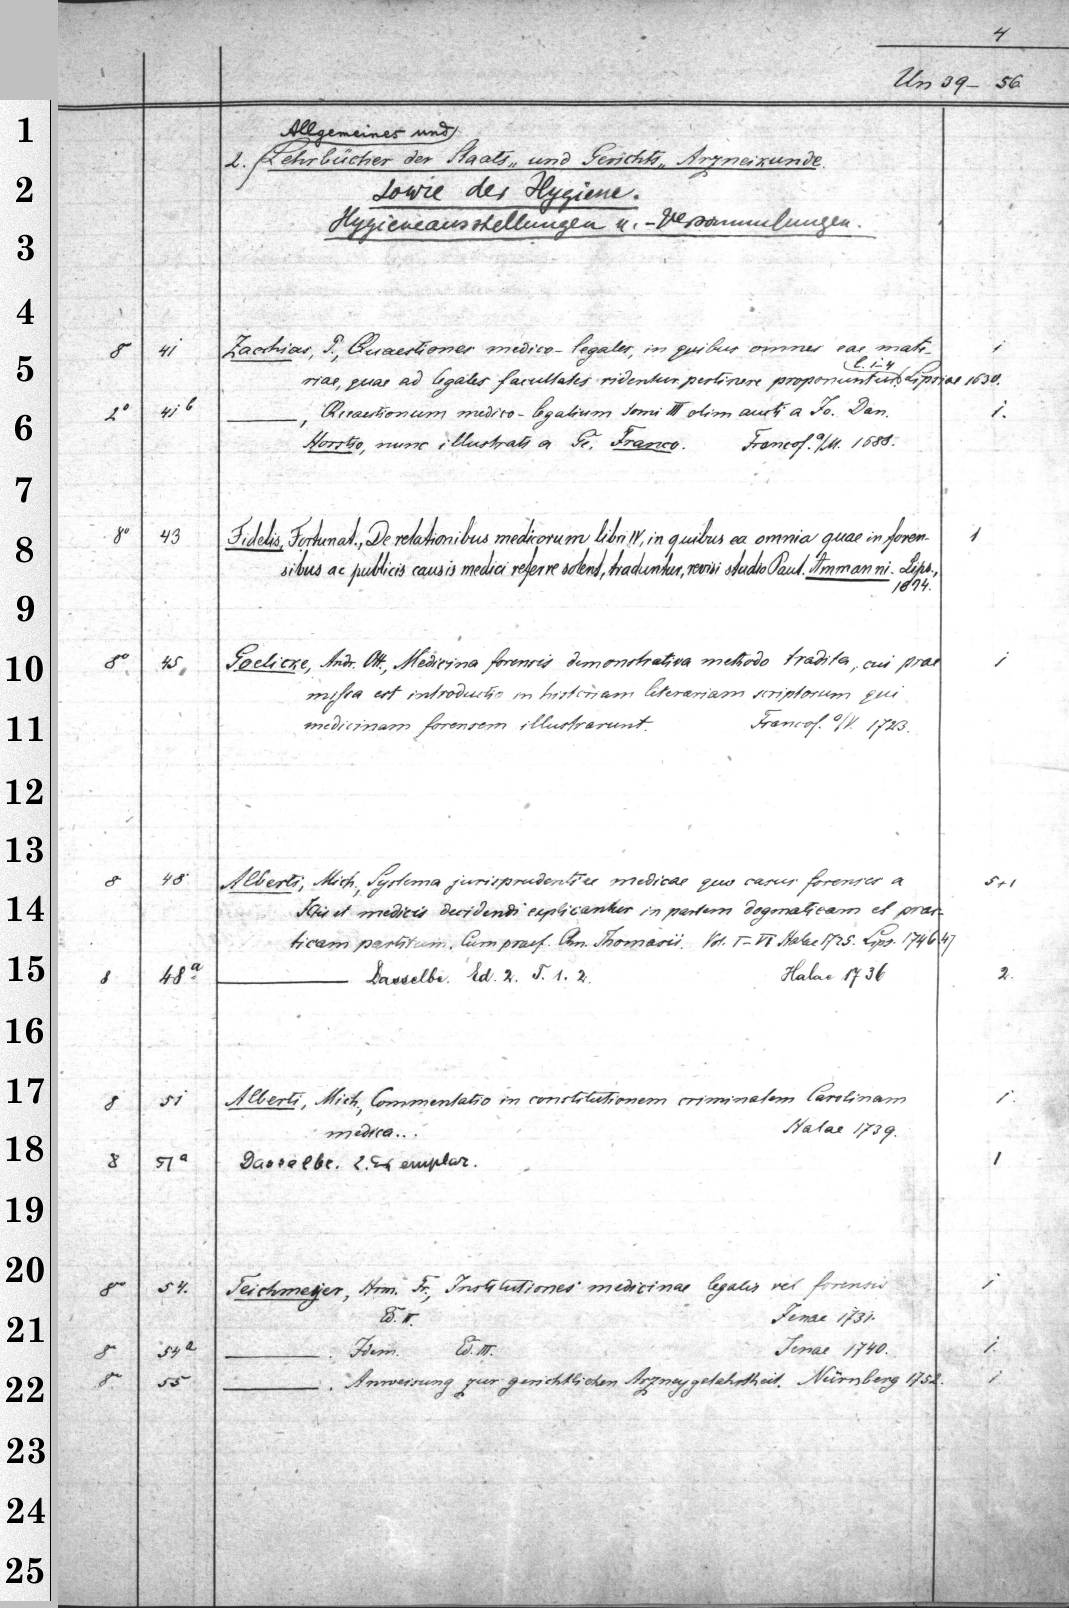 4
Un 39 – 56
1
2
3
4
5
6
7
8
9
10
11
12
13
14
15
16
17
18
19
20
21
22
23
24
25
Allgemeines und
2. Lehrbücher der Staats- und Gerichts- Arzneikunde
sowie der Hygiene.
Hygieneausstellungen u. -Versammlungen.
8 41 Zacchias, P., Quaestiones medico-legales, in quibus omnes eae mate- 1
l. 1-4
riae, quae ad legales facultates videntur pertinere proponuntur. Lipsiae 1630.
2° 41b ———, Quaestionum medico-legalium tomi III olim aucti a Jo. Dan. 1.
Horstio, nunc illustrati a Ge. Franco. Francof. a/M. 1688.
8° 43 Fidelis, Fortunat., De relationibus medicorum libri IV, in quibus ea omnia quae in foren- 1
sibus ac publicis causis medici referre solent, traduntur, revisi studio Paul. Ammanni. Lips.,
1674.
8° 45 Goelicke, Andr. Ott., Medicina forensis demonstrativa methodo tradita, cui prae 1
missa est introductio in historiam literariam scriptorum qui
medicinam forensem illustrarunt. Francof. a/V. 1723.
8 48 Alberti, Mich., Systema jurisprudentiae medicae quo casus forenses a 5+1
Ictis et medicis decidendi explicantur in partem dogmaticam et prac-
ticam partitum. Cum praef. Chn. Thomasii. Vol. I–VI Halae 1725. Lips. 1746.47
8 48a ——— Dasselbe. Ed. 2. T. 1. 2. Halae 1736 2.
8 51 Alberti, Mich., Commentatio in constitutionem criminalem Carolinam 1.
medica... Halae 1739.
8 51a Dasselbe. 2. Exemplar. 1
8° 54. Teichmeyer, Hrm. Fr., Institutiones medicinae legalis vel forensis 1
Ed. II. Jenae 1731.
8° 54a ———. Idem. Ed. III. Jenae 1740. 1.
8° 55 ———. Anweisung zur gerichtlichen Arzneygelahrtheit. Nürnberg 1752. 1